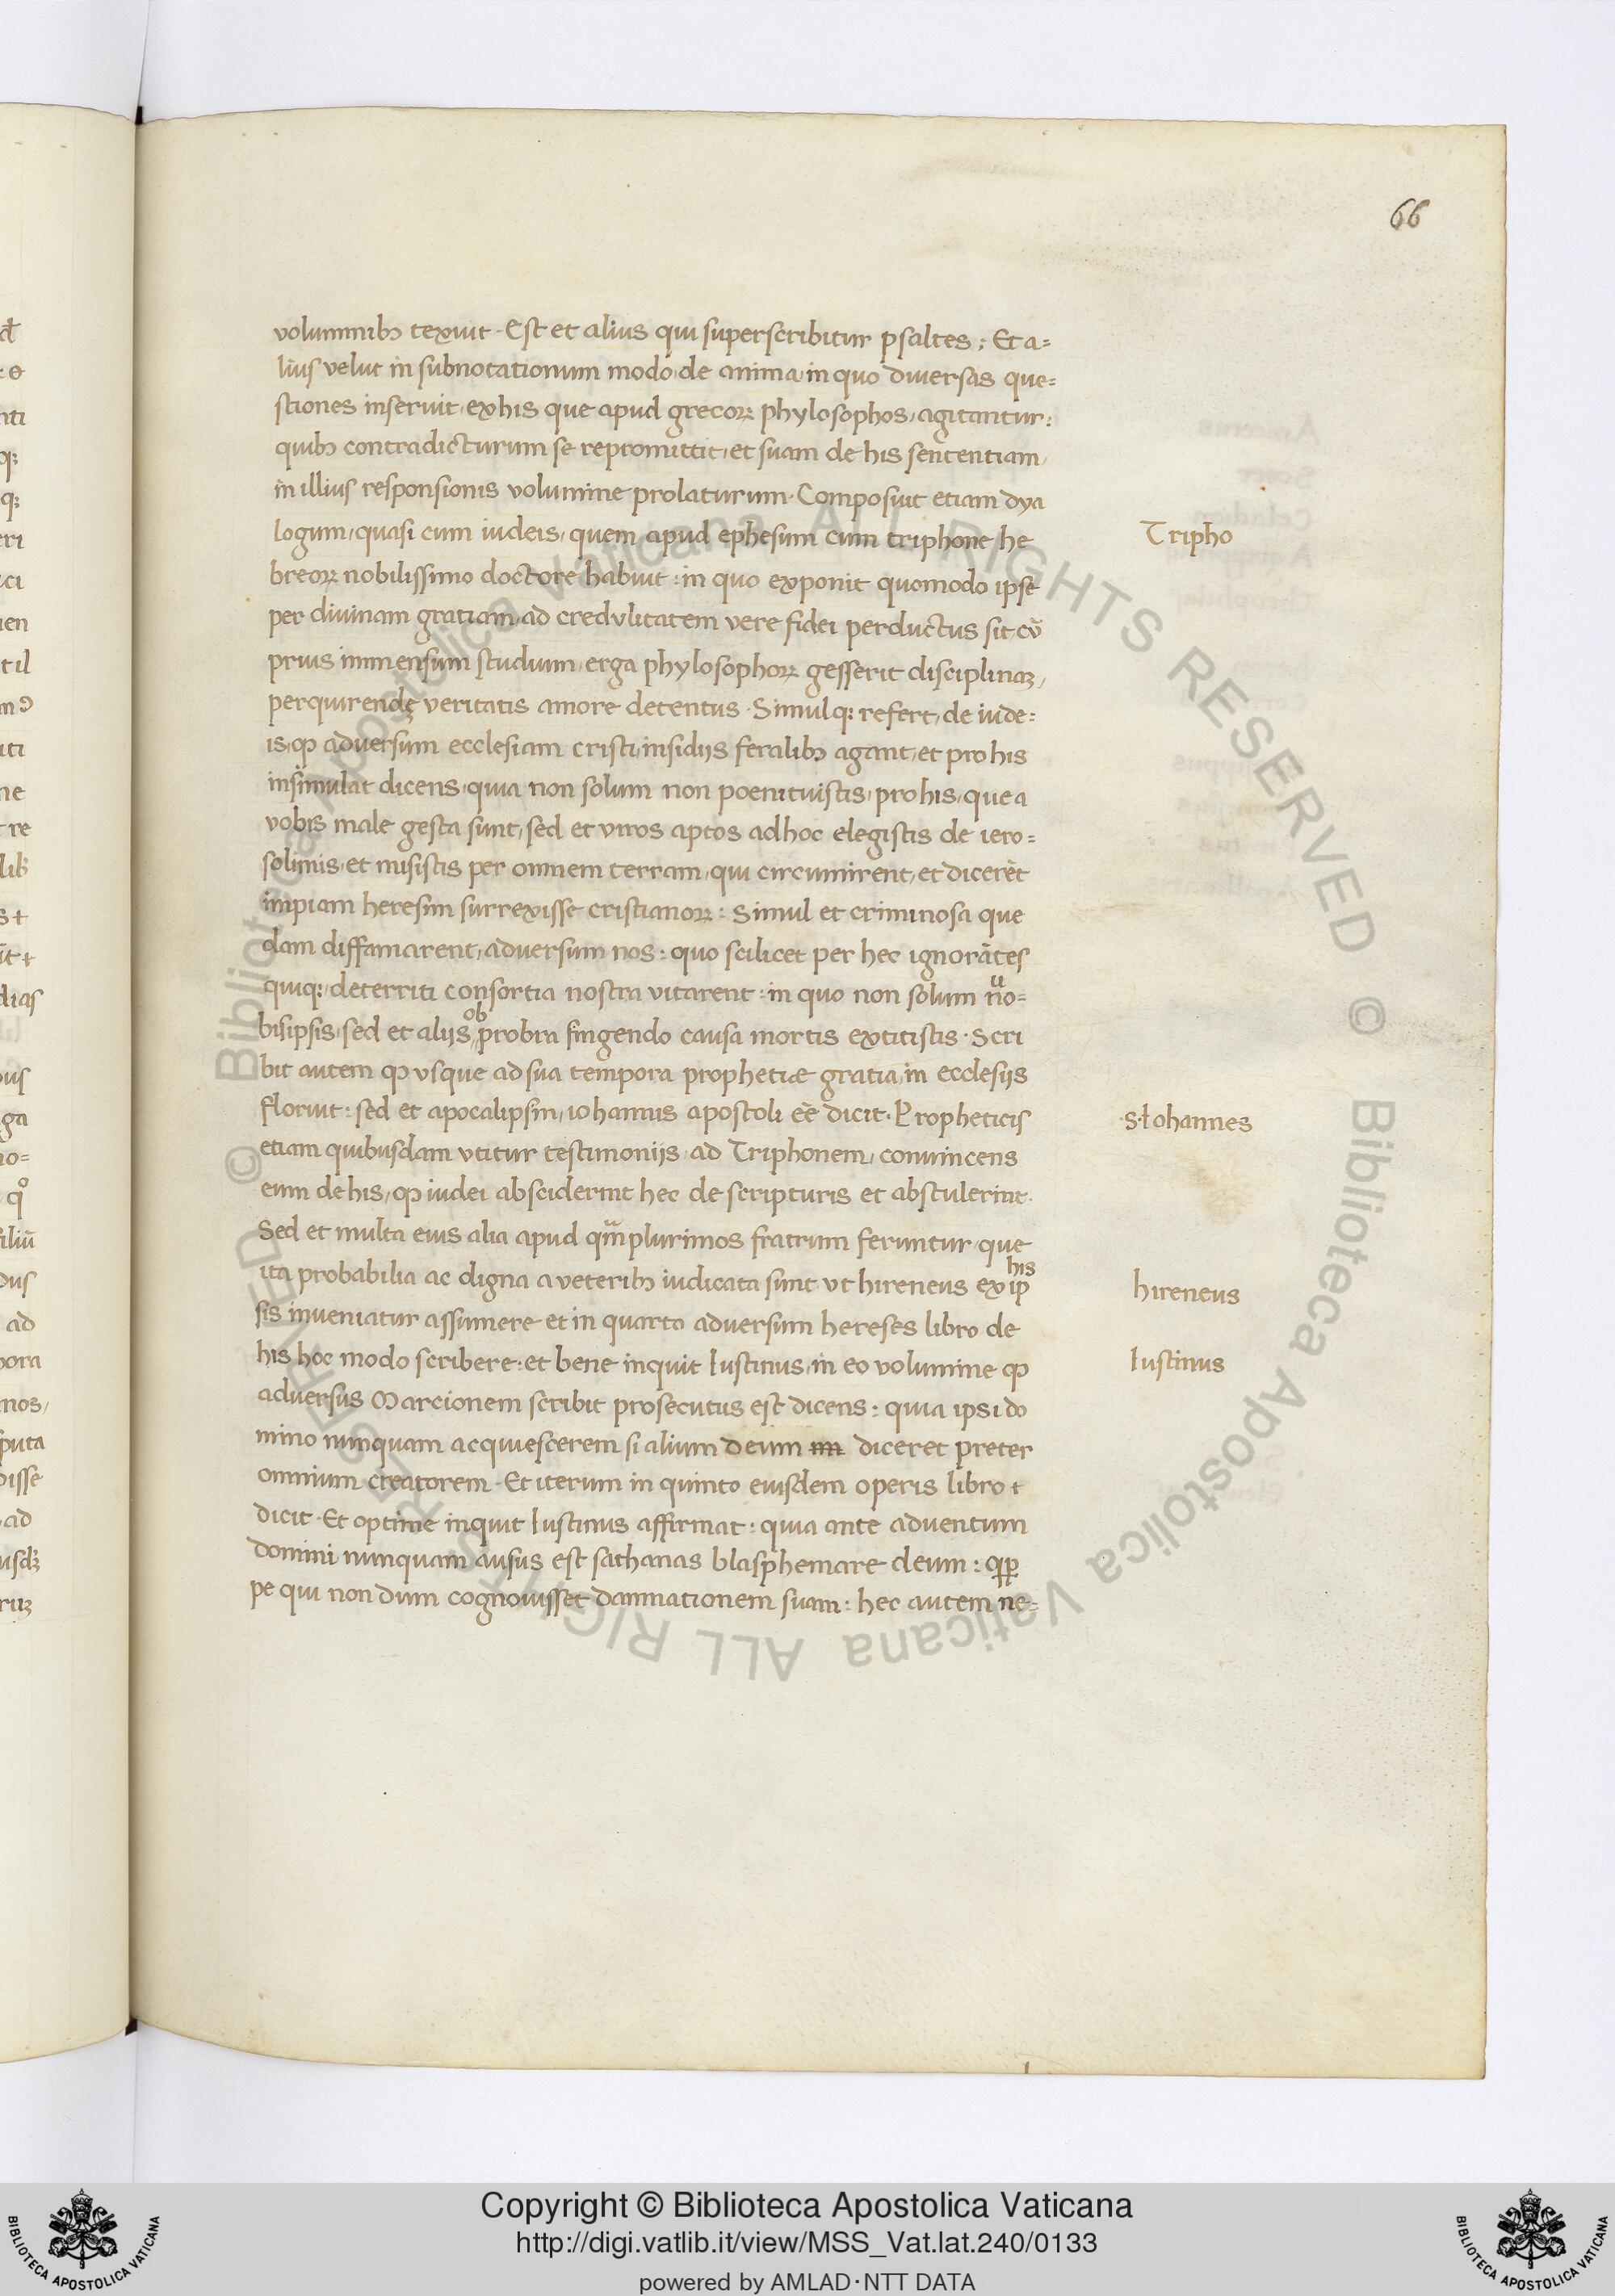 66
voluminibꝫ texuit · Est et alius qui superscribitur psaltes ; Et a=
lius velut in subnotationum modo, de anima, in quo diuersas que=
stiones inseruit, ex his que apud grecoꝝ phylosophos, agitantur :
quibꝫ contradicturum se repromittit, et suam de his sententiam,
in illius responsionis volumine prolaturum · Composuit etiam dya
logum, quasi cum iudeis, quem apud ephesum cum triphone he
Tripho
breoꝝ nobilissimo doctore habuit : in quo exponit quomodo ipse
per diuinam gratiam, ad credulitatem vere fidei perductus sit, cū
prius immensum studium, erga phylosophoꝝ gesserit disciplinaꝝ,
perquirendę veritatis amore detentus · Simul qꝫ refert, de iude=
is, ꝙ aduersum ecclesiam cristi, insidijs feralibꝫ agant, et pro his
insimulat dicens, quia non solum non poenituistis, pro his, que a
vobis male gesta sunt, sed et viros aptos ad hoc elegistis de iero=
solimis, et misistis per omnem terram, qui circumirent, et dicerēt
impiam heresim surrexisse cristianoꝝ : Simul et criminosa que
dam diffamarent, aduersum nos : quo scilicet per hec ignorātes
quiqꝫ, deterriti consortia nostra vitarent : in quo non solum no=
bis ipsis, sed et alijs, ob probra fingendo causa mortis extitistis · Scri
bit autem ꝙ vsque ad sua tempora prophetiæ gratia, in ecclesijs
floruit : sed et apocalipsin, iohannis apostoli eē dicit · Propheticis
s · Iohannes
etiam quibusdam vtitur testimonijs, ad Triphonem, conuincens
eum de his, ꝙ iudei absciderint hec de scripturis et abstulerint.
Sed et multa eius alia apud qmplurimos fratrum feruntur, que
ita probabilia ac digna a veteribꝫ iudicata sunt vt hireneus ex his ip
hireneus
sis inueniatur assumere et in quarto aduersum hereses libro de
his hoc modo scribere : et bene inquit Iustinus, in eo volumine ꝙ
Iustinus
aduersus Marcionem scribit prosecutus est dicens : quia ipsi do
mino nunquam acquiescerem si alium deum diceret preter
omnium creatorem · Et iterum in quinto eiusdem operis libro
dicit · Et optime inquit Iustinus affirmat : quia ante aduentum
domini nunquam ausus est sathanas blasphemare deum : qꝑ
pe qui non dum cognouisset damnationem suam : hec autem ne=
Copyright © Biblioteca Apostolica Vaticana
http://digi.vatlib.it/view/MSS_Vat.lat.240/0133
powered by AMLAD · NTT DATA
BIBLIOTECA APOSTOLICA VATICANA
BIBLIOTECA APOSTOLICA VATICANA
© Biblioteca Apostolica Vaticana ALL RIGHTS RESERVED © Biblioteca Apostolica Vaticana ALL RIGHTS RESERVED